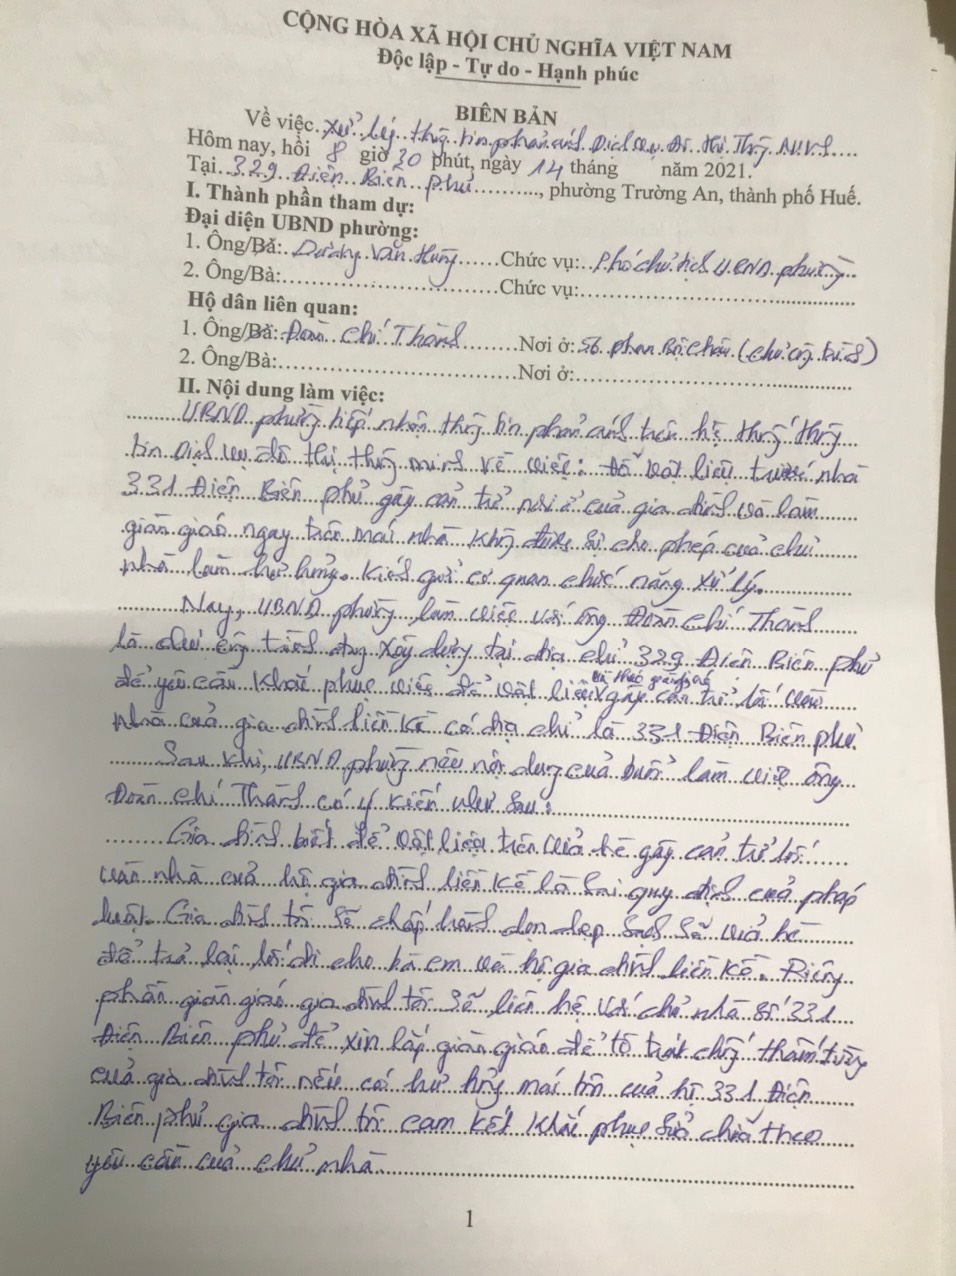 CỘNG HÒA XÃ HỘI CHỦ NGHĨA VIỆT NAM
Độc lập - Tự do - Hạnh phúc
BIÊN BẢN
Về việc. Xử lý thông tin phản ánh Dịch vụ Đô thị Thông
Hôm nay, hồi 8 giờ 30 phút, ngày 14 tháng năm 2021.
Tại 329 Điện Biên Phủ, phường Trường An, thành phố Huế.
I. Thành phần tham dự:
Đại diện UBND phường:
1. Ông/Bà: Dương Văn Hùng Chức vụ: Phó chủ tịch UBND phường
2. Ông/Bà: Chức vụ:
Hộ dân liên quan:
1. Ông/Bà: Đoàn Chí Thành Nơi ở: 56 Phan Bội Châu (chủ công trình)
2. Ông/Bà: Nơi ở:
II. Nội dung làm việc:
UBND phường tiếp nhận thông tin phản ánh trên hệ thống thông
tin Dịch vụ đô thị thông minh về việc: Đổ vật liệu trước nhà
331 Điện Biên Phủ gây cản trở nơi ở của gia đình và làm
giàn giáo ngay trên mái nhà không được sự cho phép của chủ
nhà làm hư hỏng. Kính gửi cơ quan chức năng xử lý.
Nay, UBND phường làm việc với ông Đoàn Chí Thành
là chủ công trình đang xây dựng tại địa chỉ 329 Điện Biên Phủ
để yêu cầu khắc phục việc để vật liệu và tháo giàn giáo gây cản trở lối vào
nhà của gia đình liền kề có địa chỉ là 331 Điện Biên Phủ.
Sau khi, UBND phường nêu nội dung của buổi làm việc ông
Đoàn Chí Thành có ý kiến như sau:
Gia đình biết để vật liệu trên vỉa hè gây cản trở lối
vào nhà của hộ gia đình liền kề là sai quy định của pháp
luật. Gia đình tôi sẽ chấp hành dọn dẹp sạch sẽ vỉa hè
để trả lại lối đi cho bà con và hộ gia đình liền kề. Riêng
phần giàn giáo gia đình tôi sẽ liên hệ với chủ nhà số 331
Điện Biên Phủ để xin lắp giàn giáo để tô trát chống thấm tường
của gia đình tôi nếu có hư hỏng mái tôn của hộ 331 Điện
Biên Phủ gia đình tôi cam kết khắc phục sửa chữa theo
yêu cầu của chủ nhà.
1